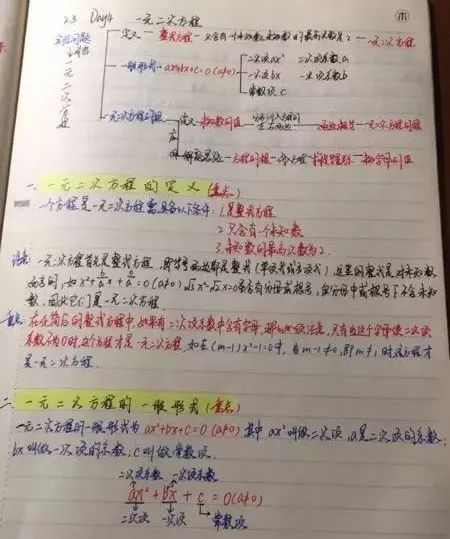 2.3 Day4 一元二次方程
定义 整式方程 只含有一个未知数 未知数的最高次数是2 一元二次方程
实际问题
一元二次方程
一般形式 ax²+bx+c=0(a≠0)
二次项ax² 二次项系数a
一次项bx 一次项系数b
常数项c
一元二次方程的根
定义 未知数的值 左右两边 一元二次方程的根
应用 解题思路 方程的根
一、一元二次方程的定义(重点)
一个方程是一元二次方程需具备以下条件:1.是整式方程
2.只含有一个未知数
3.未知数的最高次数为2.
注意:一元二次方程首先是整式方程,即等号两边都是整式(单项式或多项式),这里的整式是对未知数
而言的,如x²+b/a x+c/a=0(a≠0) 等含有分母或根号,但分母中或根号下不含未知
数,因此它们是一元二次方程
重点:在化简后的整式方程中,如果有二次项系数中含有字母,那么必须注意,只有当这个字母使二次项
系数不为0时,这个方程才是一元二次方程,如在(m-1)x²-1=0中,当m-1≠0,即m≠1时该方程才
是一元二次方程.
二、一元二次方程的一般形式(重点)
一元二次方程的一般形式为ax²+bx+c=0(a≠0)其中ax²叫做二次项,a是二次项的系数;
bx叫做一次项的系数;c叫做常数项.
二次项系数 一次项系数
ax²+bx+c=0(a≠0)
二次项 一次项 常数项